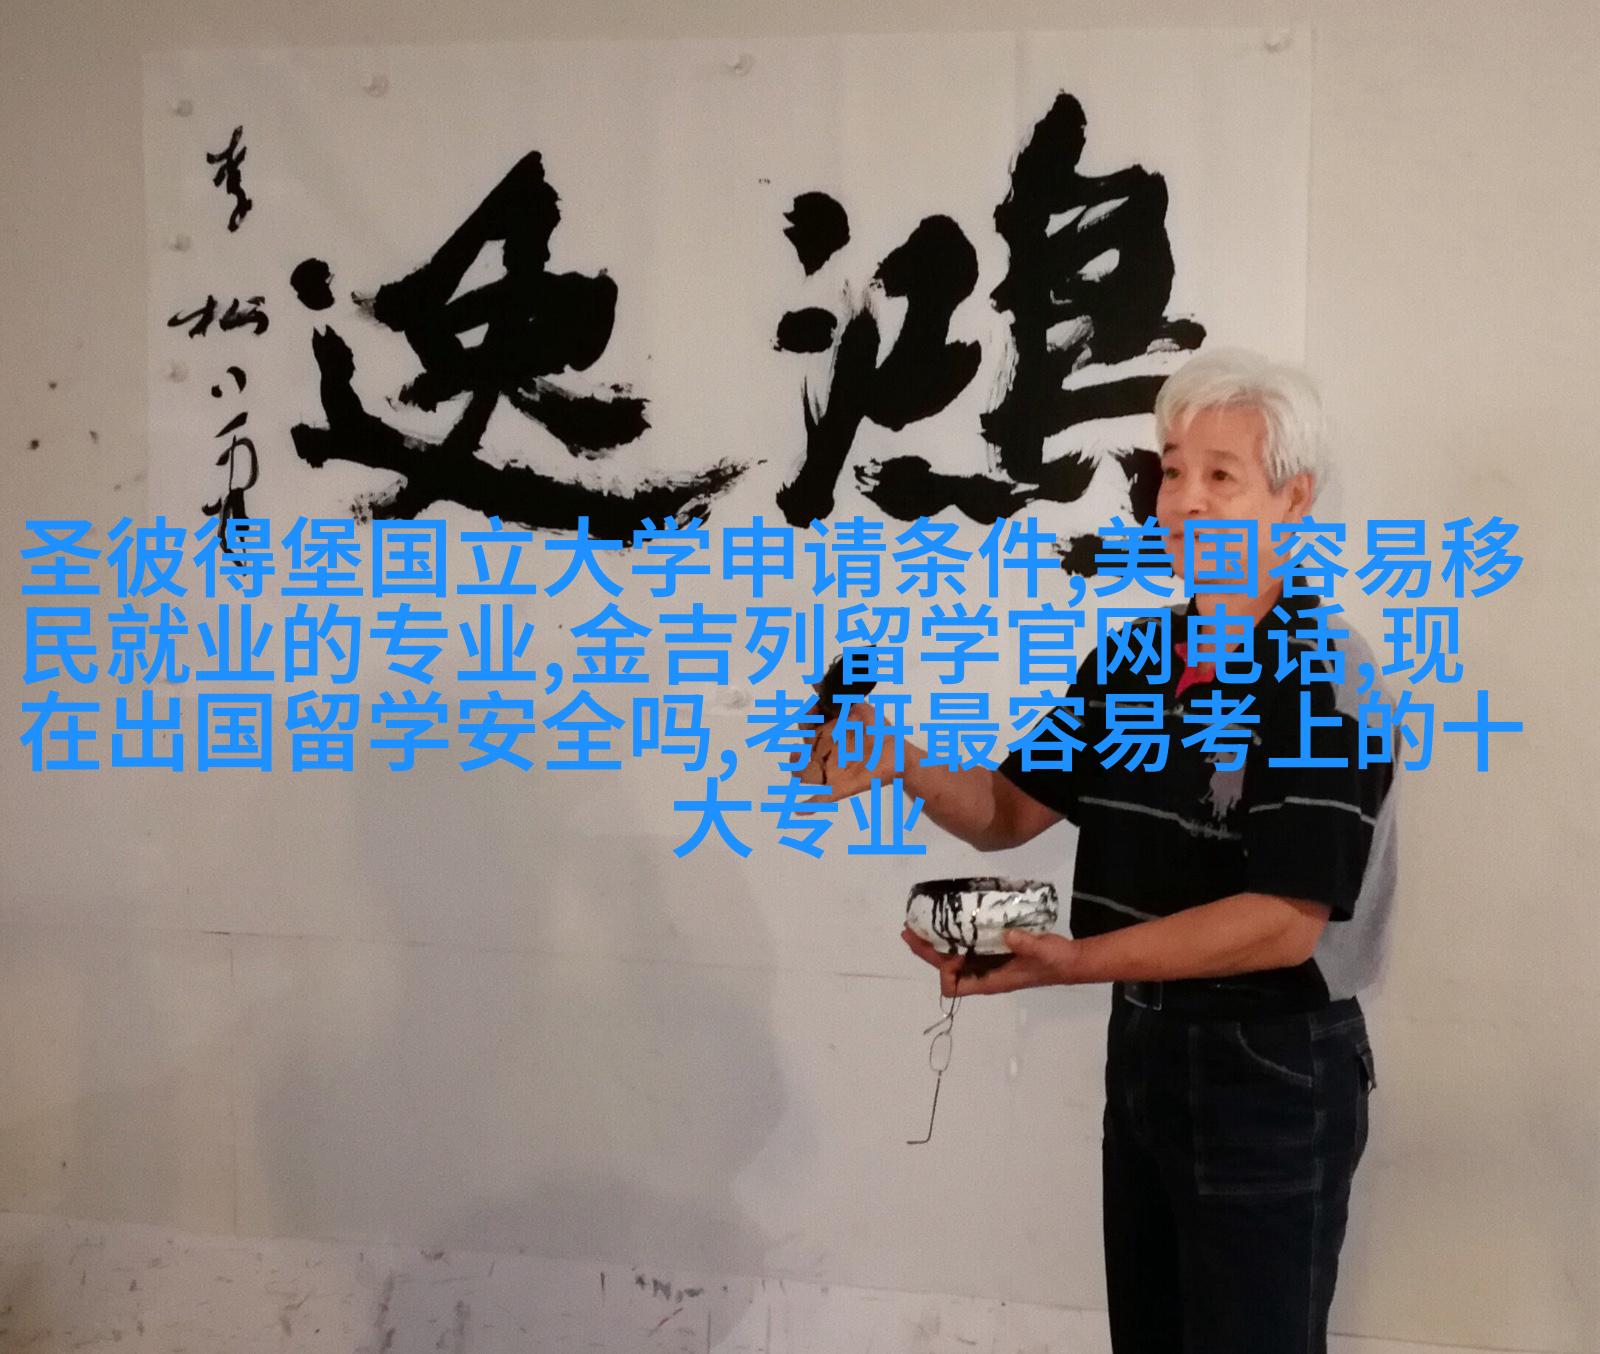 鸿逸
李松
圣彼得堡国立大学申请条件,美国容易移
民就业的专业,金吉列留学官网电话,现
在出国留学安全吗,考研最容易考上的十
大专业